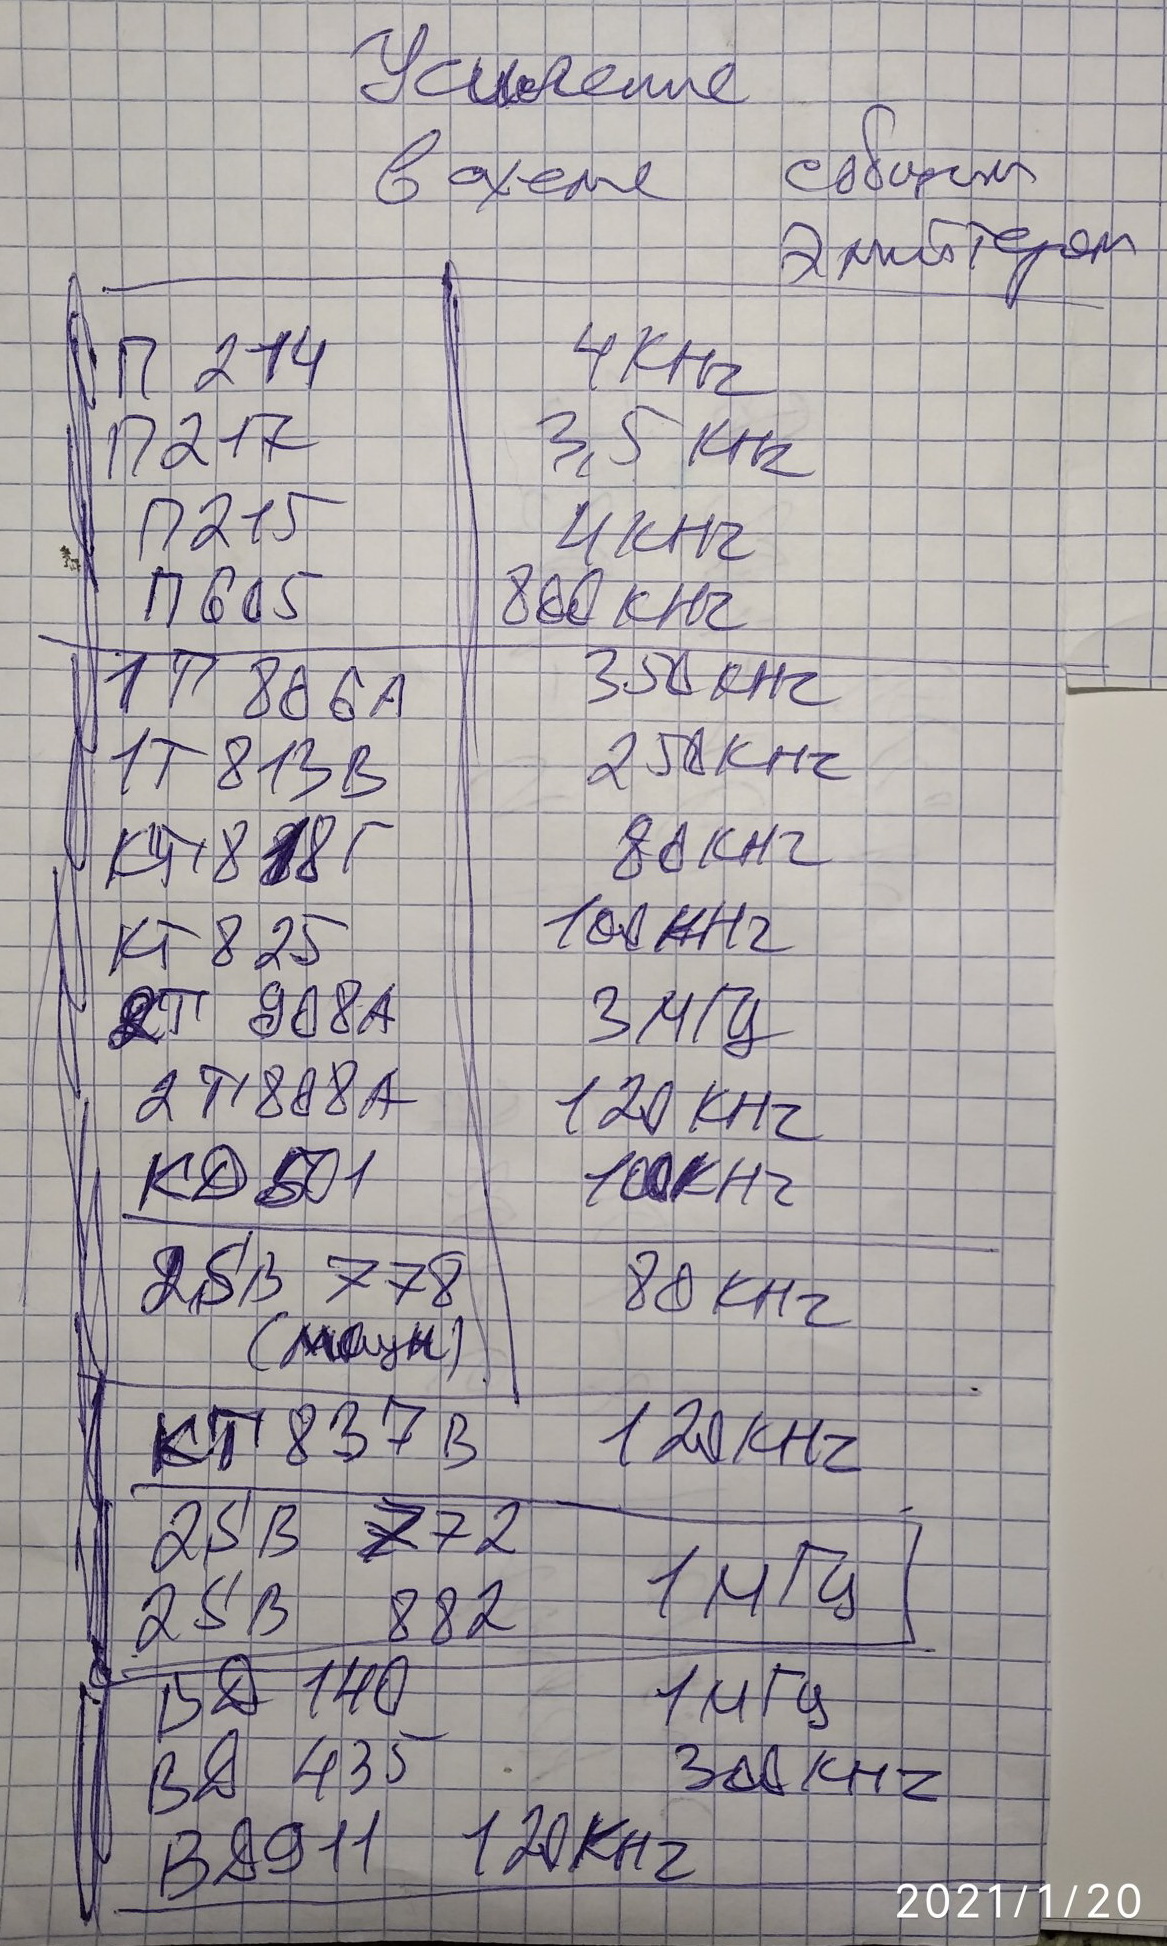 Усиление
в схеме с общим
эмиттером
П 214 4 КHz
П217 3,5 КHz
П215 4 КHz
П605 800 КHz
1Т 806А 350 КHz
1Т 813В 250 КHz
КТ 818Г 80 КHz
КТ 825 100 КHz
2Т 908А 3 МГц
2Т 808А 120 КHz
КД 501 100 КHz
2SB 778 80 КHz
(мощн)
КТ 837В 120 КHz
2SB 772
1 МГц
2SB 882
BD 140 1 МГц
BD 435 300 КHz
BD911 120 КHz
2021/1/20